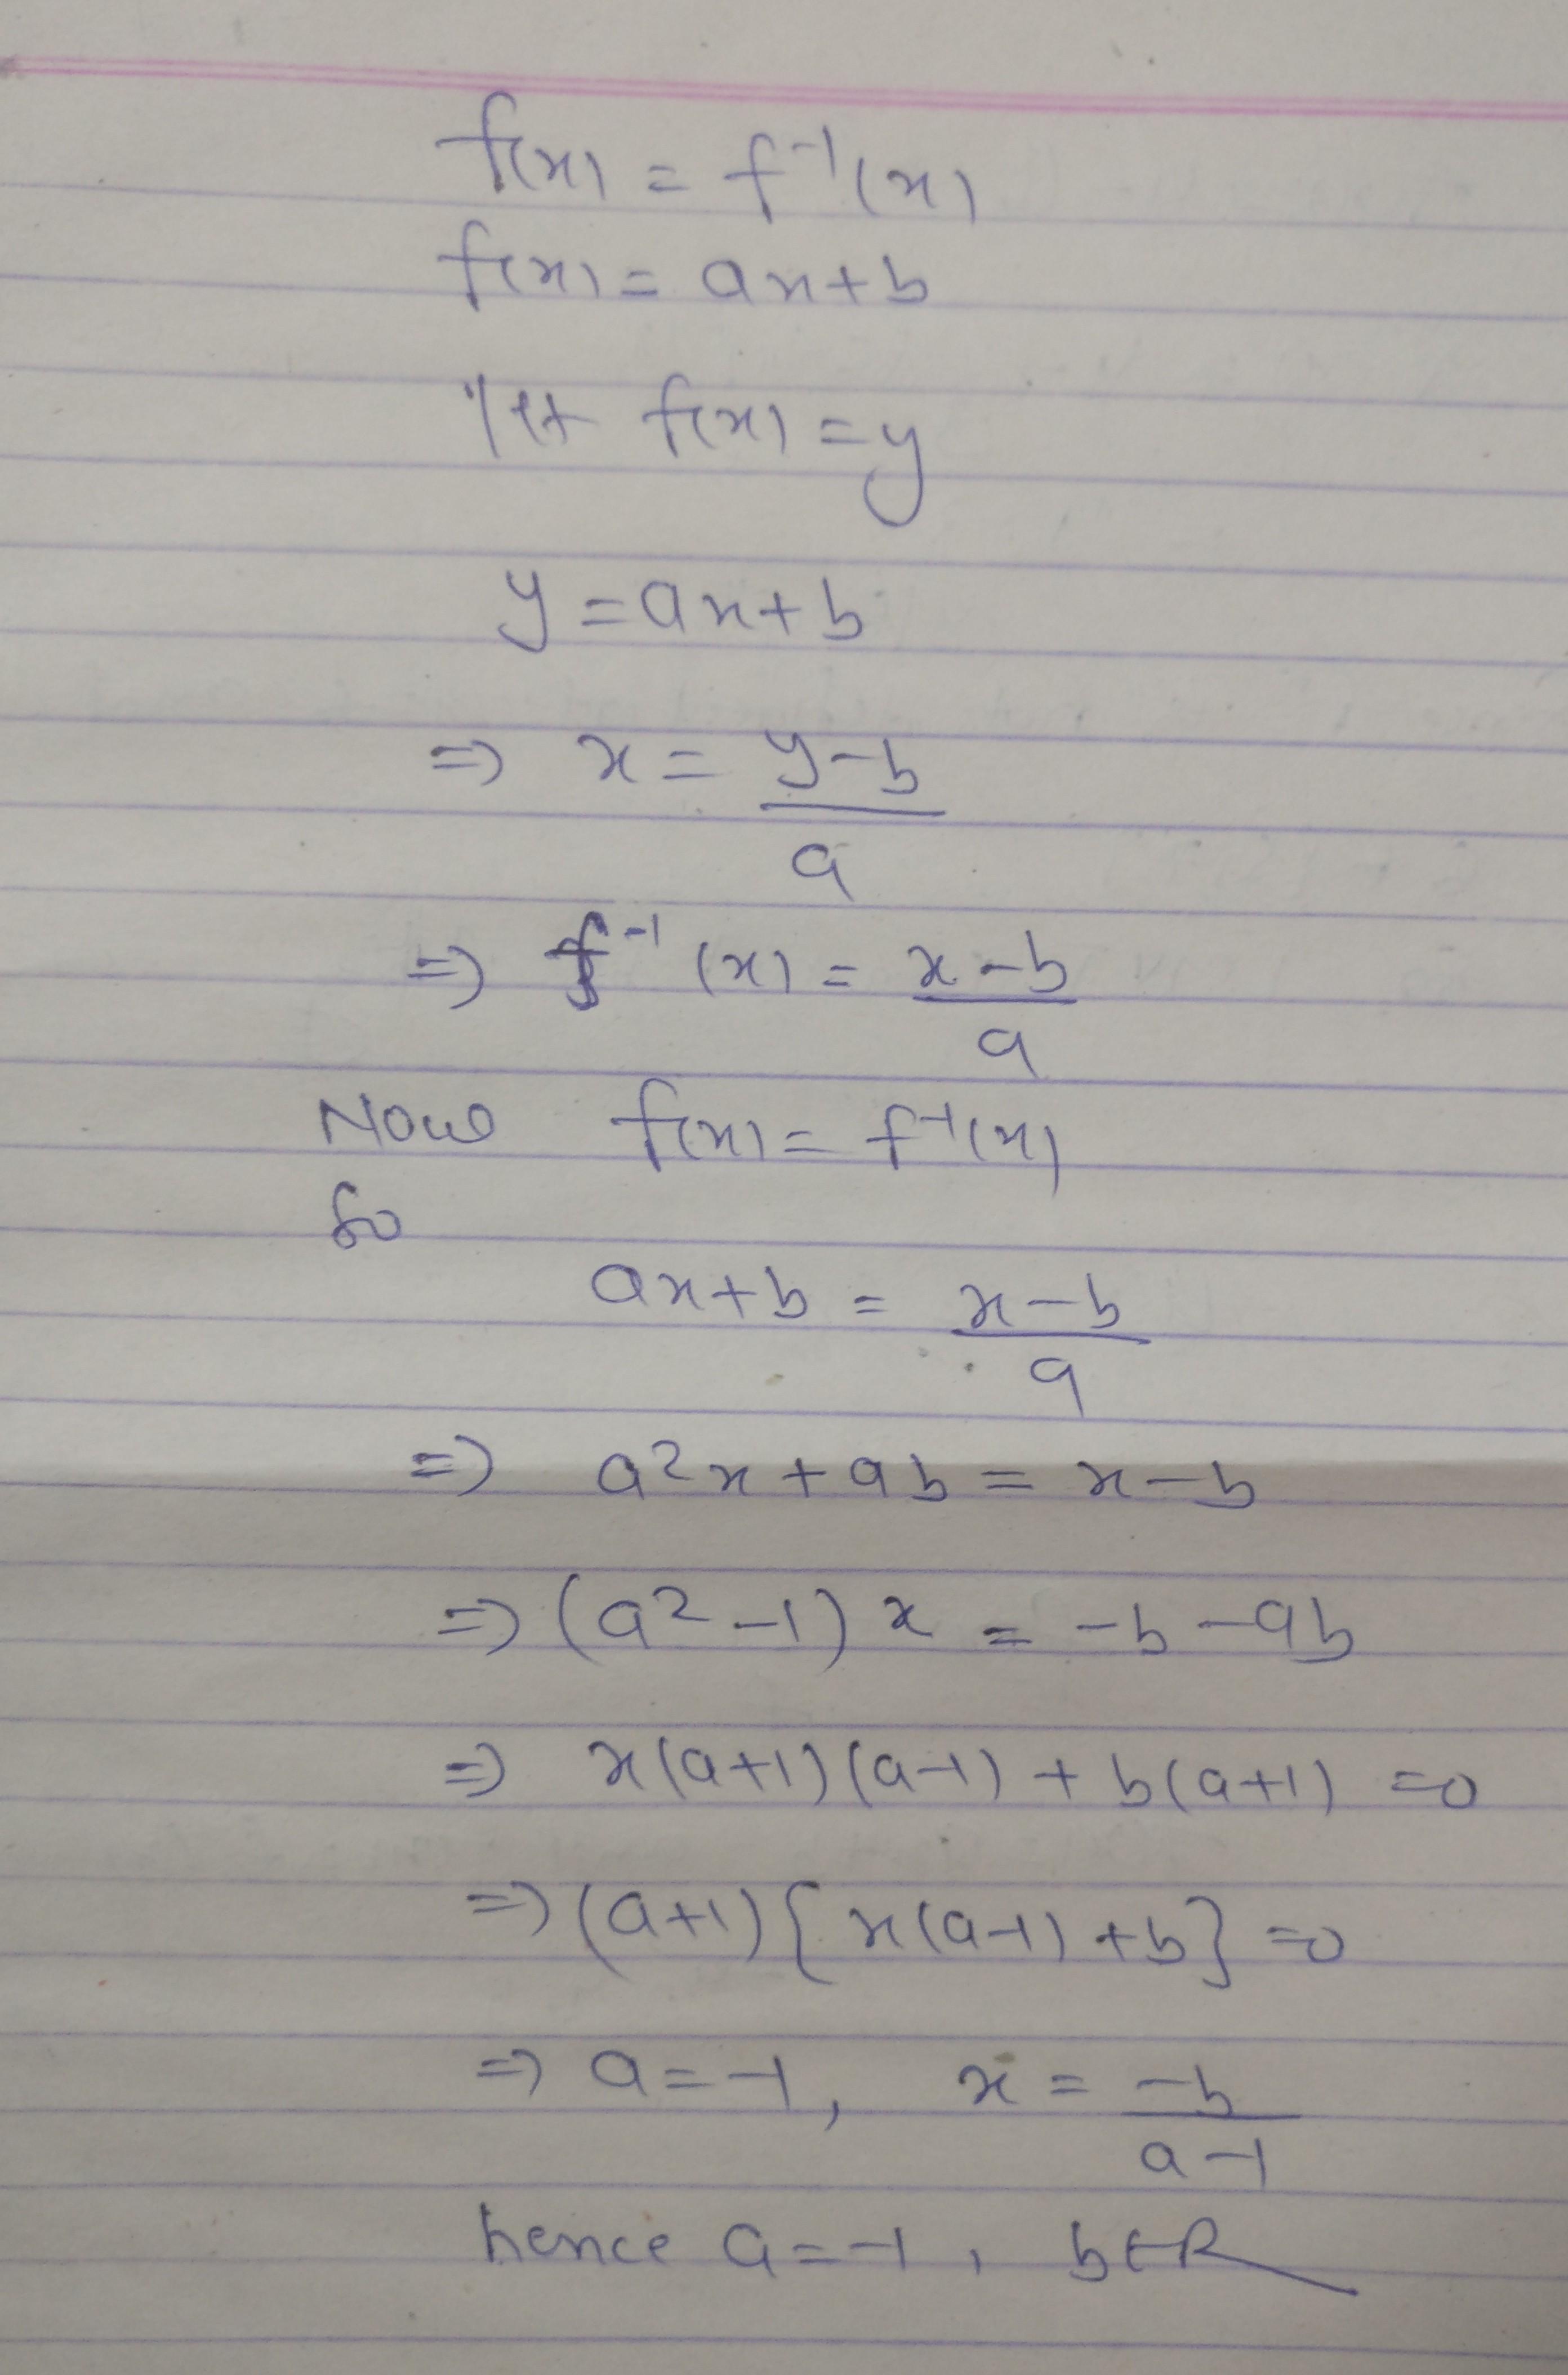 f(x) = f⁻¹(x)
f(x) = ax+b
let f(x) = y
y = ax+b
⇒ x = (y-b)/a
⇒ f⁻¹(x) = (x-b)/a
Now f(x) = f⁻¹(x)
So
ax+b = (x-b)/a
⇒ a²x + ab = x-b
⇒ (a²-1)x = -b-ab
⇒ x(a+1)(a-1) + b(a+1) = 0
⇒ (a+1){x(a-1)+b} = 0
⇒ a = -1, x = -b/(a-1)
hence a = -1, b∈R